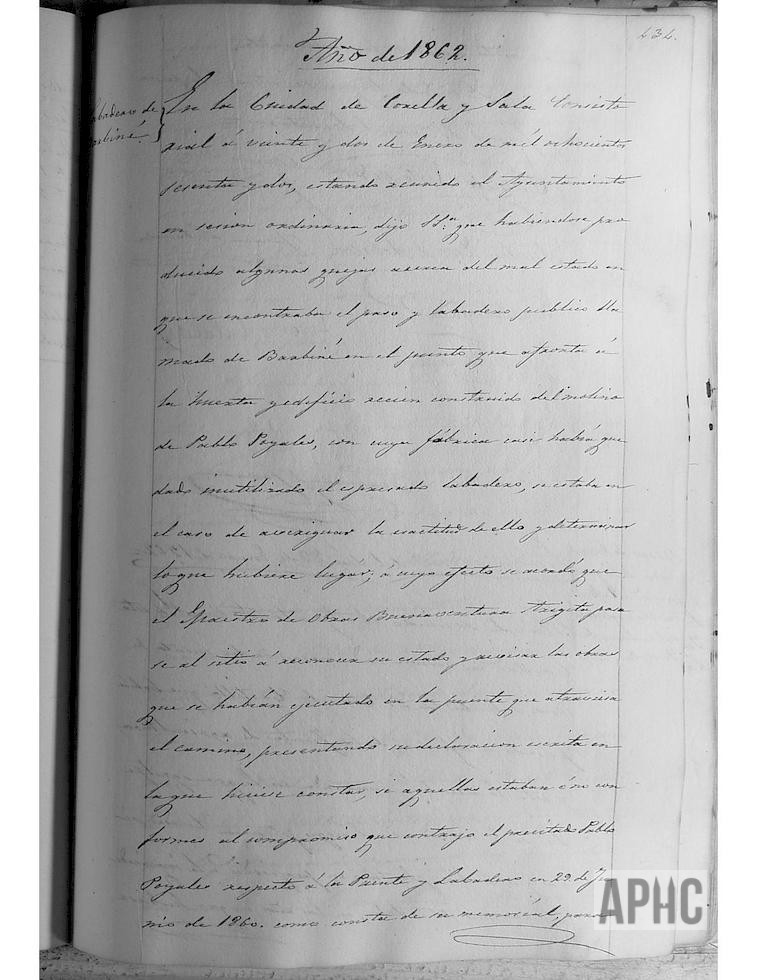 434.
Año de 1862.
Labadero de
Barbiné.
En la Ciudad de Corella y Sala Consisto
rial á veinte y dos de Enero de mil ochocientos
sesenta y dos, estando reunido el Ayuntamiento
en sesion ordinaria, dijo SSª que habiendose pro
ducido algunas quejas acerca del mal estado en
que se encontraba el paso y labadero publico lla
mado de Barbiné en el punto que afronta á
la huerta y edificio recien construido del molino
de Pablo Poyales, con cuya fábrica casi habia que
dado inutilizado el espresado labadero, se estaba en
el caso de averiguar la exactitud de ello y determinar
lo que hubiere lugar; á cuyo efecto se acordó que
el Maestro de Obras Buenaventura Arigita pasa
se al sitio á reconocer su estado y revisar las obras
que se habian ejecutado en la puente que atraviesa
el camino, presentando su declaracion escrita en
la que hiciese constar, si aquellas estaban ó no con
formes al compromiso que contrajo el precitado Pablo
Poyales respecto á la Puente y Labadero en 29 de Ju
nio de 1860. como consta de su memorial, para
APHC